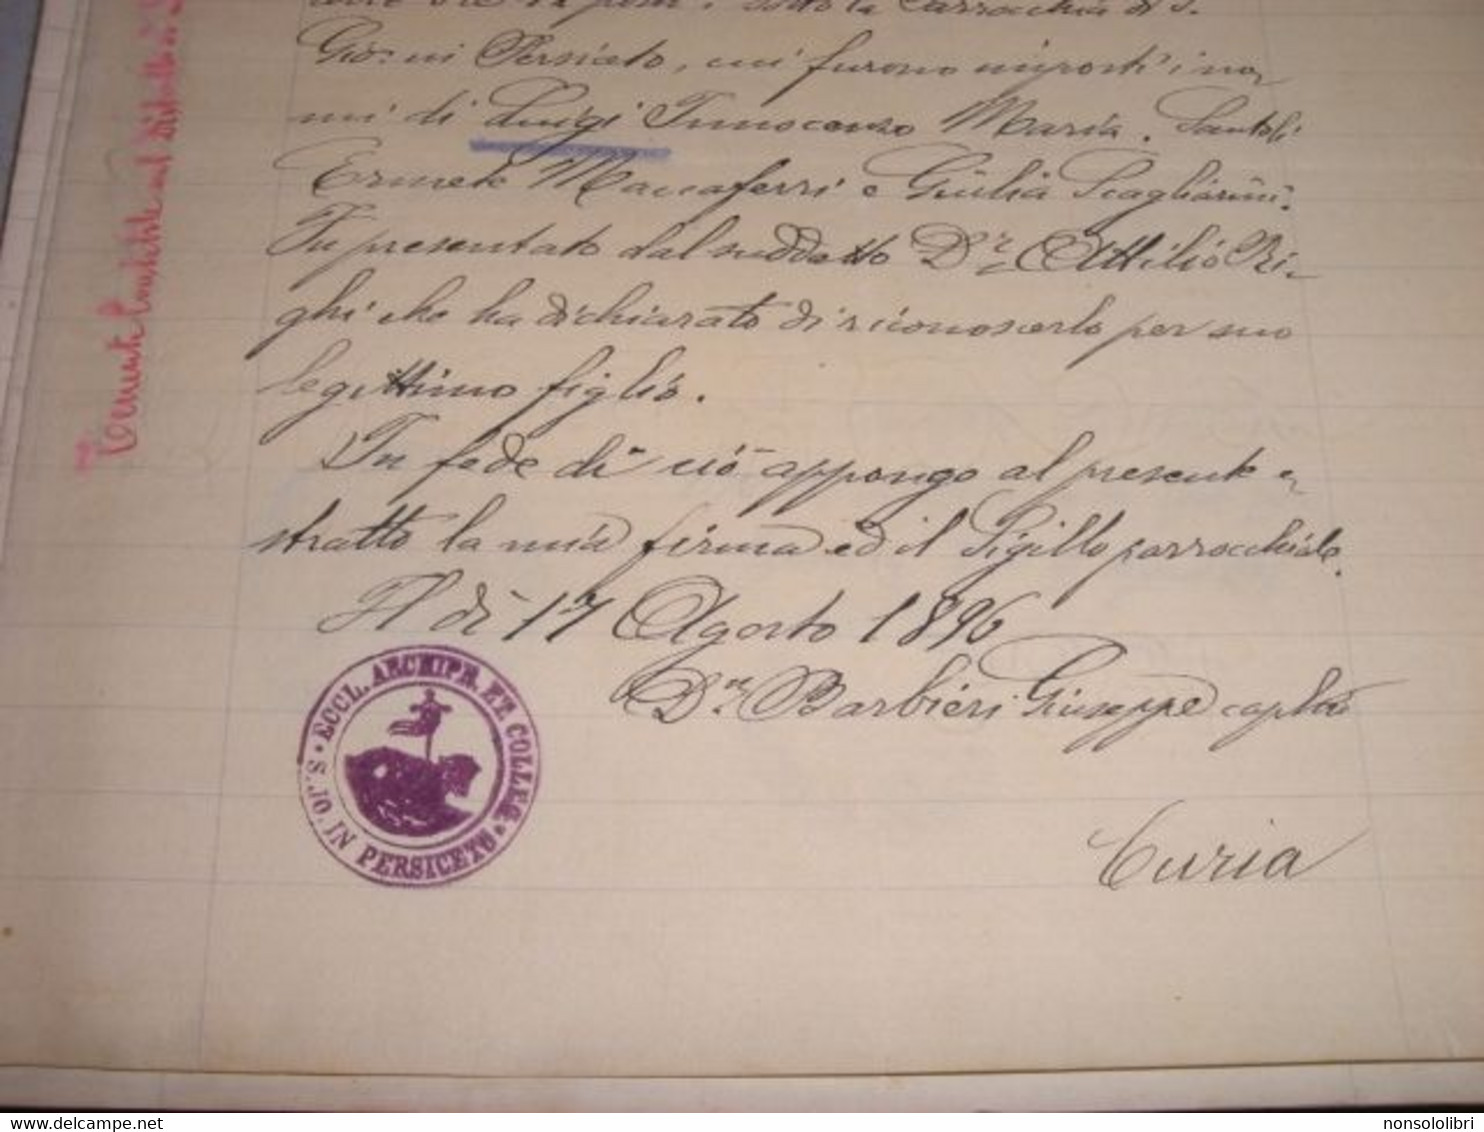 sotto la Parrocchia di S.
Gio: in Persiceto, cui furono imposti i no-
mi di Luigi Innocenzo Maria. Santoli
Ermete Maccaferri e Giulia Scagliarini.
Fu presentato dal suddetto Dr. Attilio Ri-
ghi che ha dichiarato di riconoscerlo per suo
legittimo figlio.
In fede di ciò appongo al presente e-
stratto la mia firma ed il Sigillo parrocchiale.
A dì 17 Agosto 1896
Dn. Barbieri Giuseppe
Curia
ECCL. ARCHIPR. ET COLLEG. S. JO. IN PERSICETO
delcampe.net
nonsololibri